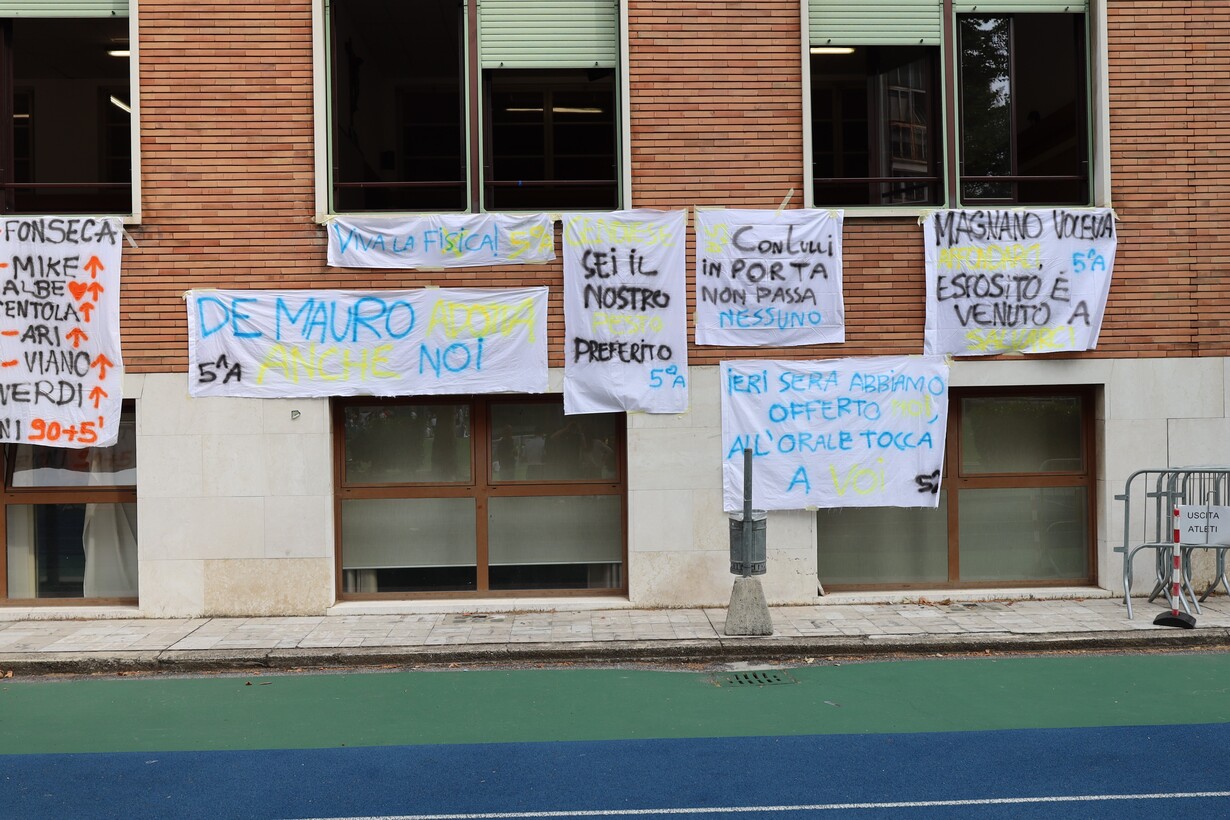 FONSECA
- MIKE ↑
ALBE ♥↑
ENTOLA ↑
- ARI ↑
- VIANO ↑
VERDI ↑
NI 90+5'
VIVA LA FISICA! 5^A
DE MAURO ADOTTA
5^A ANCHE NOI
SEI IL
NOSTRO
PESTO
PREFERITO
5^A
CON LULLI
IN PORTA
NON PASSA
NESSUNO
MAGNANO VOLEVA
AFFONDARCI, 5^A
ESPOSITO È
VENUTO A
SALVARCI!
IERI SERA ABBIAMO
OFFERTO NOI,
ALL'ORALE TOCCA
A VOI 5^
USCITA
ATLETI